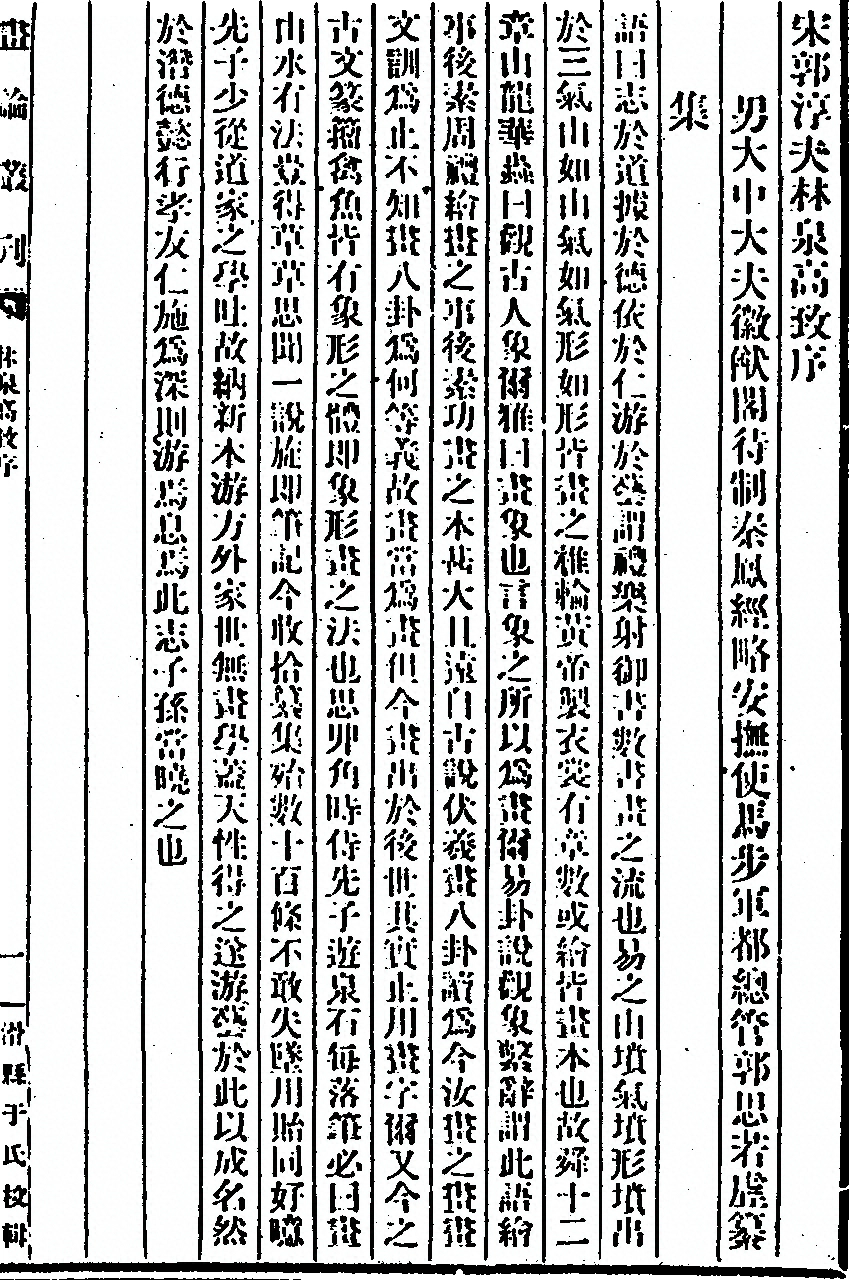 宋郭淳夫林泉高致序
男大中大夫徽猷閣待制秦鳳經略安撫使馬步軍都總管郭思若虛纂
集
語曰志於道據於德依於仁游於藝謂禮樂射御書數書畫之流也易之山墳氣墳形墳出
於三氣山如山氣如氣形如形皆畫之椎輪黃帝製衣裳有章數或繪皆畫本也故舜十二
章山龍華蟲曰觀古人象爾雅曰畫象也言象之所以爲畫爾易卦說觀象繫辭謂此語繪
事後素周禮繪畫之事後素功畫之本甚大且遠自古說伏羲畫八卦讀爲今汝畫之畫畫
文訓爲止不知畫八卦爲何等義故畫當爲畫但今畫出於後世其實止用畫字爾又今之
古文篆籀禽魚皆有象形之體即象形畫之法也思丱角時侍先子遊泉石每落筆必曰畫
山水有法豈得草草思聞一說旋即筆記今收拾纂集殆數十百條不敢失墜用貽同好噫
先子少從道家之學吐故納新本游方外家世無畫學蓋天性得之遂游藝於此以成名然
於潛德懿行孝友仁施爲深則游焉息焉此志子孫當曉之也
畫論叢刊
林泉高致序
一
滑縣于氏校輯